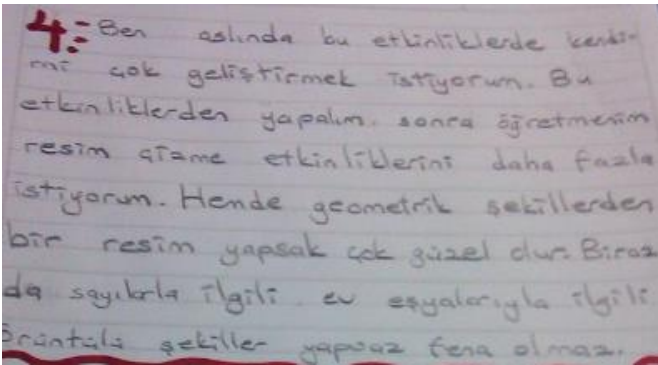 4:- Ben aslında bu etkinliklerde kendi-
mi çok geliştirmek istiyorum. Bu
etkinliklerden yapalım. sonra öğretmenim
resim çizme etkinliklerini daha fazla
istiyorum. Hemde geometrik şekillerden
bir resim yapsak çok güzel olur. Biraz
da sayılarla ilgili ev eşyalarıyla ilgili
örüntülü şekiller yapsaz fena olmaz.